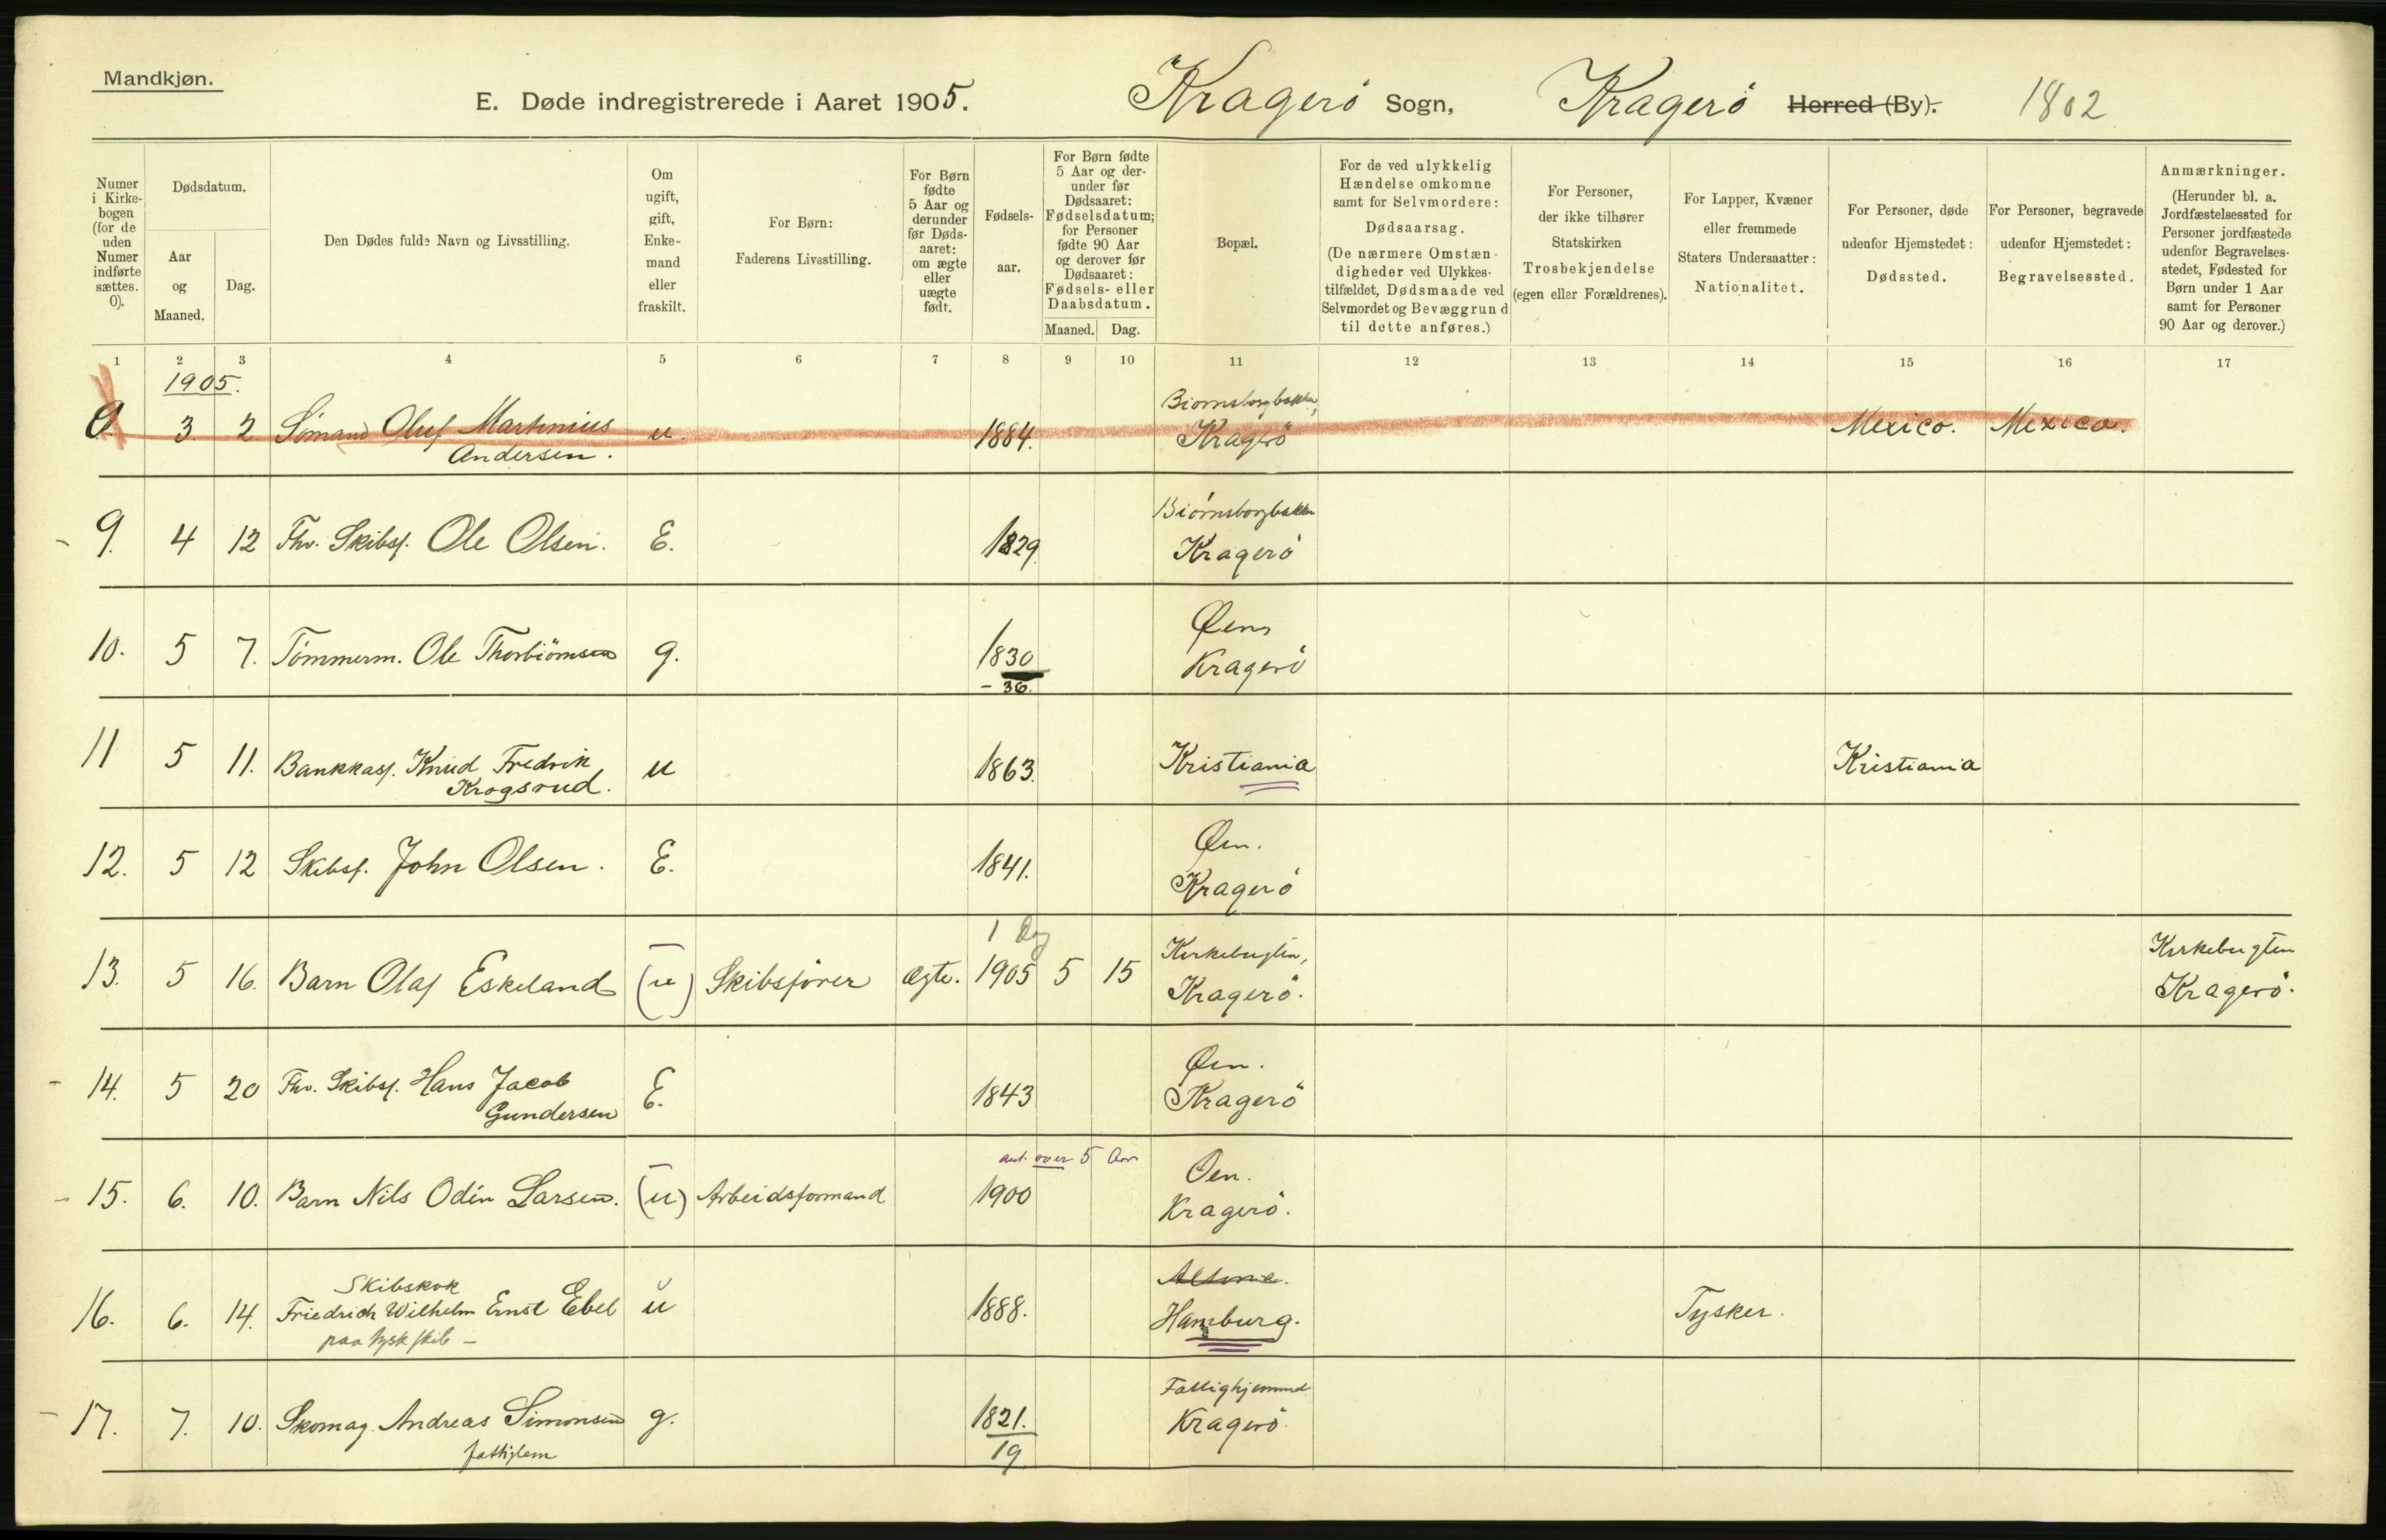 Mandkjøn.
E. Døde indregistrerede i Aaret 1905. Kragerö Sogn, Kragerö Herred (By). 1802
Numer i Kirkebogen (for de uden Numer indførte sættes. 0).
Dødsdatum.
Aar og Maaned.
Dag.
Den Dødes fulde Navn og Livsstilling.
Om ugift, gift, Enkemand eller fraskilt.
For Børn: Faderens Livsstilling.
For Børn fødte 5 Aar og derunder før Dødsaaret: om ægte eller uægte født.
Fødselsaar.
For Børn fødte 5 Aar og derunder før Dødsaaret: Fødselsdatum; for Personer fødte 90 Aar og derover før Dødsaaret: Fødsels- eller Daabsdatum.
Maaned. Dag.
Bopæl.
For de ved ulykkelig Hændelse omkomne samt for Selvmordere: Dødsaarsag. (De nærmere Omstændigheder ved Ulykkestilfældet, Dødsmaade ved Selvmordet og Bevæggrund til dette anføres.)
For Personer, der ikke tilhører Statskirken Trosbekjendelse (egen eller Forældrenes).
For Lapper, Kvæner eller fremmede Staters Undersaatter: Nationalitet.
For Personer, døde udenfor Hjemstedet: Dødssted.
For Personer, begravede udenfor Hjemstedet: Begravelsessted.
Anmærkninger. (Herunder bl. a. Jordfæstelsessted for Personer jordfæstede udenfor Begravelsesstedet, Fødested for Børn under 1 Aar samt for Personer 90 Aar og derover.)
1 2 3 4 5 6 7 8 9 10 11 12 13 14 15 16 17
1905.
Biörnsborgbakken,
0 3 2 Sömand Oluf Martinius u. 1884. Kragerö Mexico. Mexico.
Andersen.
Biörnsborgbakken
9. 4 12 Fhv. Skibsf. Ole Olsen. E. 1829 Kragerö
Øen
10. 5 7. Tömmerm. Ole Thorbiörnsen g. 1830 Kragerö
- 36.
11 5 11. Bankkass. Knud Fredrik u 1863. Kristiania Kristiania
Krogsrud.
Øen.
12. 5 12 Skibsf. John Olsen. E. 1841. Kragerö
1 Dag Kirkebugten, Kirkebugten
13. 5 16. Barn Olaf Eskeland (u) Skibsförer ægte. 1905 5 15 Kragerö. Kragerö.
Øen.
14. 5 20 Fhv. Skibsf. Hans Jacob E. 1843 Kragerö
Gundersen
ant. over 5 Aar Øen.
15. 6. 10. Barn Nils Odin Larsen. (u) Arbeidsformand 1900 Kragerö.
Skibskok Altona.
16. 6. 14. Friedrich Wilhelm Ernst Ebel u 1888. Hamburg. Tysker.
paa tysk skib -
Fattighjemmet
17. 7. 10. Skomag. Andreas Simonsen g. 1821. Kragerö.
fattiglem 19